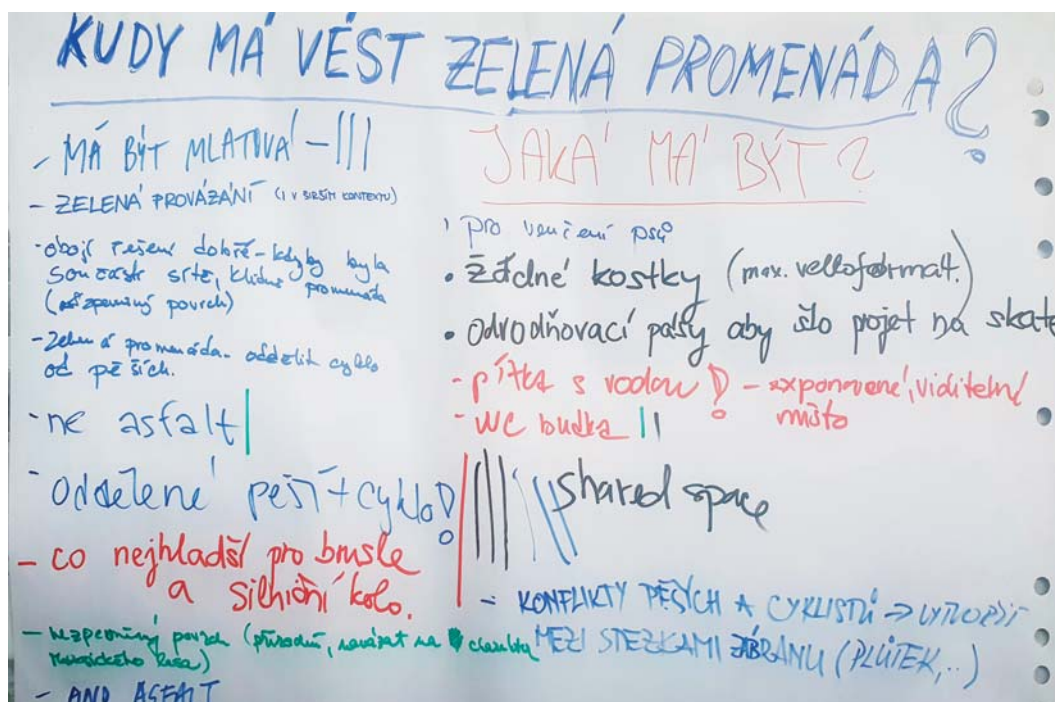 KUDY MÁ VÉST ZELENÁ PROMENÁDA?
- MÁ BÝT MLATOVÁ - |||
- ZELENÁ PROVÁZÁNÍ (I V ŠIRŠÍM KONTEXTU)
- obojí řešení dobře - kdyby byla
součástí sítě, klidná promenáda
povrch)
- Zelená promenáda - oddělit cyklo
od pěších.
- ne asfalt |
- Oddělené pěší + cyklo!
- co nejhladší pro brusle
a silniční kolo.
- povrch (přírodní, navázat na
lesa)
- ANO ASFALT
JAKÁ MÁ BÝT?
pro venčení psů
• žádné kostky (max. velkoformát.)
• odvodňovací pásy aby šlo projet na skate
- pítka s vodou! - exponované, viditelné
místo
- WC budka ||
shared space
- KONFLIKTY PĚŠÍCH A CYKLISTŮ → VYTVOŘIT
MEZI STEZKAMI ZÁBRANU (PLŮTEK,..)